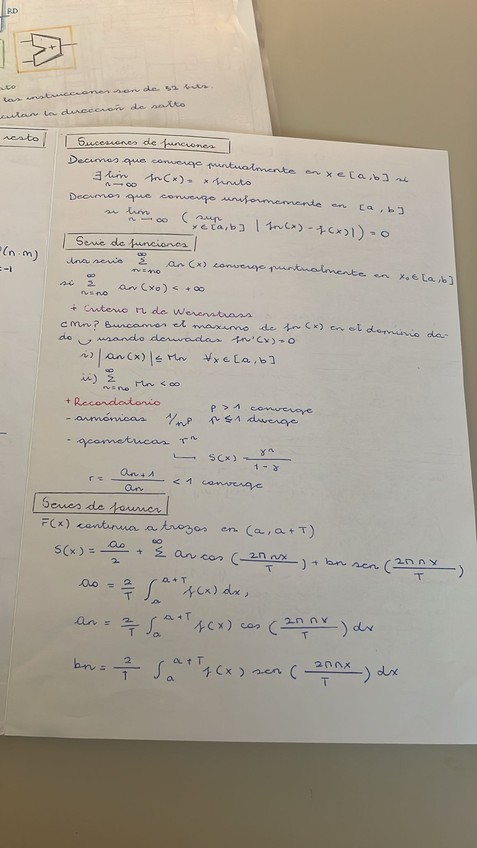 RD
+
las instrucciones son de 32 bits.
cular la dirección de salto
resto
(n.m)
=-1
Sucesiones de funciones
Decimos que converge puntualmente en x ∈ [a,b] si
∃ lim n→∞ fn(x) = x finito
Decimos que converge uniformemente en [a,b]
si lim n→∞ ( sup x∈[a,b] | fn(x) - f(x)|) = 0
Serie de funciones
Una serie ∞ Σ n=n0 an(x) converge puntualmente en x0 ∈ [a,b]
si ∞ Σ n=n0 an(x0) < +∞
+ Criterio M de Weierstrass
cMn? Buscamos el maximo de fn(x) en el dominio da-
do usando derivadas fn'(x)=0
i) |an(x)| ≤ Mn ∀x ∈ [a,b]
ii) ∞ Σ n=n0 Mn < ∞
+ Recordatorio
- armónicas 1/n^p p > 1 converge
p ≤ 1 diverge
- geometricas r^n
↳ S(x) = r^n / 1-r
r = an+1 / an < 1 converge
Series de fourier
F(x) continua a trozos en (a, a+T)
S(x) = a0/2 + ∞ Σ an cos (2πnx/T) + bn sen (2πnx/T)
a0 = 2/T ∫ a a+T f(x) dx,
an = 2/T ∫ a a+T f(x) cos (2πnx/T) dx
bn = 2/T ∫ a a+T f(x) sen (2πnx/T) dx